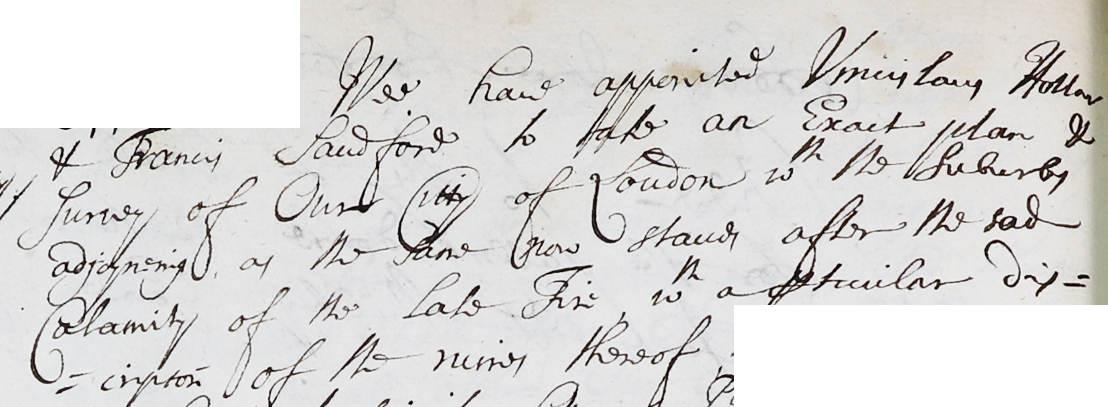 Wee have appointed Vinceslaus Hollar
& Francis Sandford to take an Exact plan &
Survey of Our Citty of London wth the Suburbs
adjoyneing, as the same now stands after the sad
Calamity of the late Fire, wth a pticular dis=
=cription of the ruines thereof